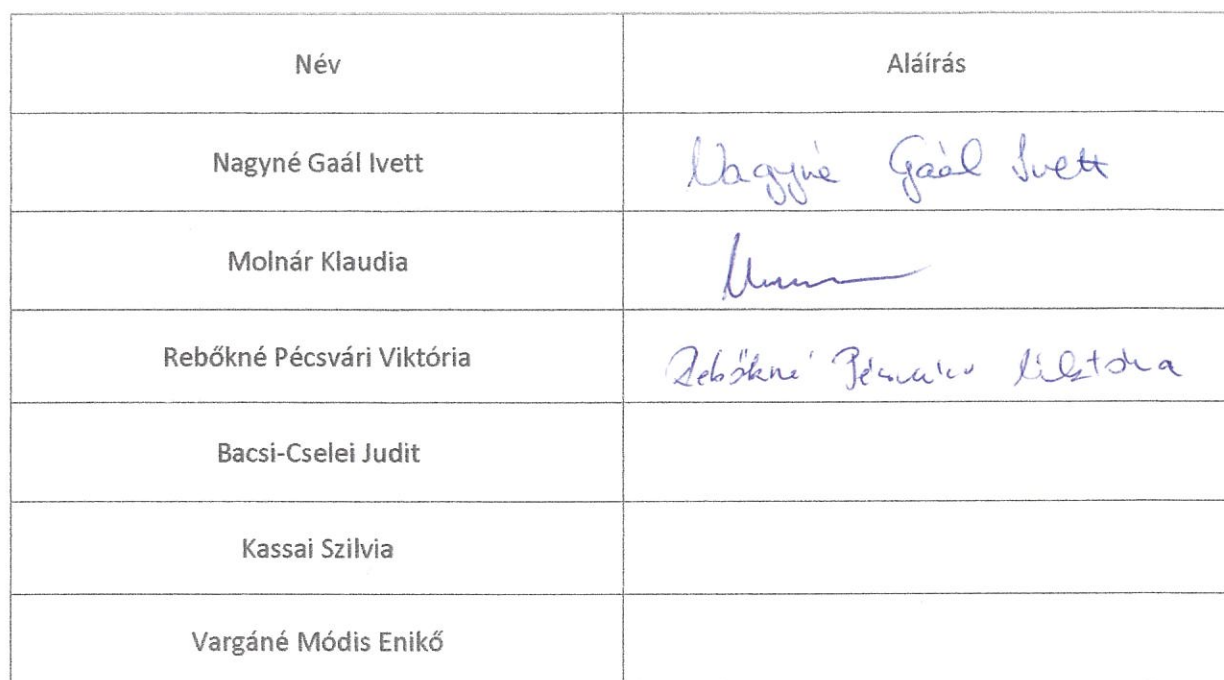 Név Aláírás
Nagyné Gaál Ivett Nagyné Gaál Ivett
Molnár Klaudia
Rebőkné Pécsvári Viktória Rebőkné Pécsvári Viktória
Bacsi-Cselei Judit
Kassai Szilvia
Vargáné Módis Enikő